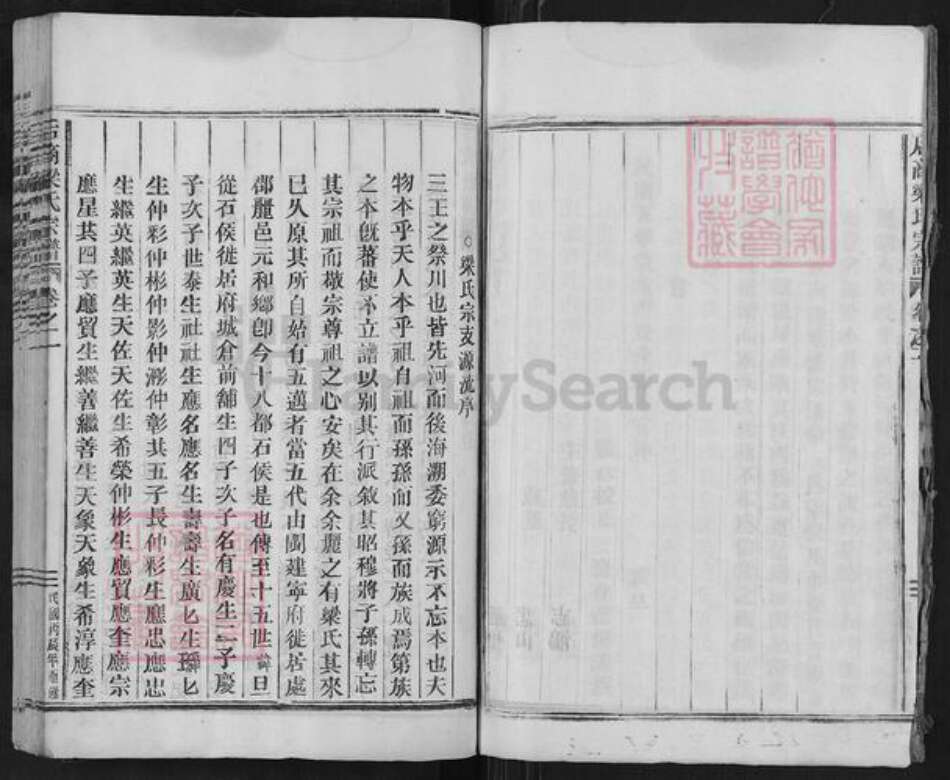 梁氏宗譜
○梁氏宗支源流序
三王之祭川也皆先河而後海溯委窮源示不忘本也夫
物本乎天人本乎祖自祖而孫孫而又孫而族成焉第族
之本旣蕃使不立譜以別其行派敘其昭穆將子孫轉忘
其宗祖而敬宗尊祖之心安矣在余余麗之有梁氏其來
已久原其所自始有五邁者當五代由閩建寧府徙居處
郡麗邑元和鄉卽今十八都石侯是也傳至十五世諱旦
從石侯徙居府城倉前舖生四子次子名有慶生二子慶
予次子世泰生社社生應名應名生壽壽生廣匕生聯匕
生仲彩仲彬仲影仲澎仲彰其五子長仲彩生應忠應忠
生繼英繼英生天佐天佐生希榮仲彬生應貿應奎應宗
應星其四子應貿生繼善繼善生天象天象生希淳應奎
梁氏宗譜 卷之一
民國丙辰年
FamilySearch